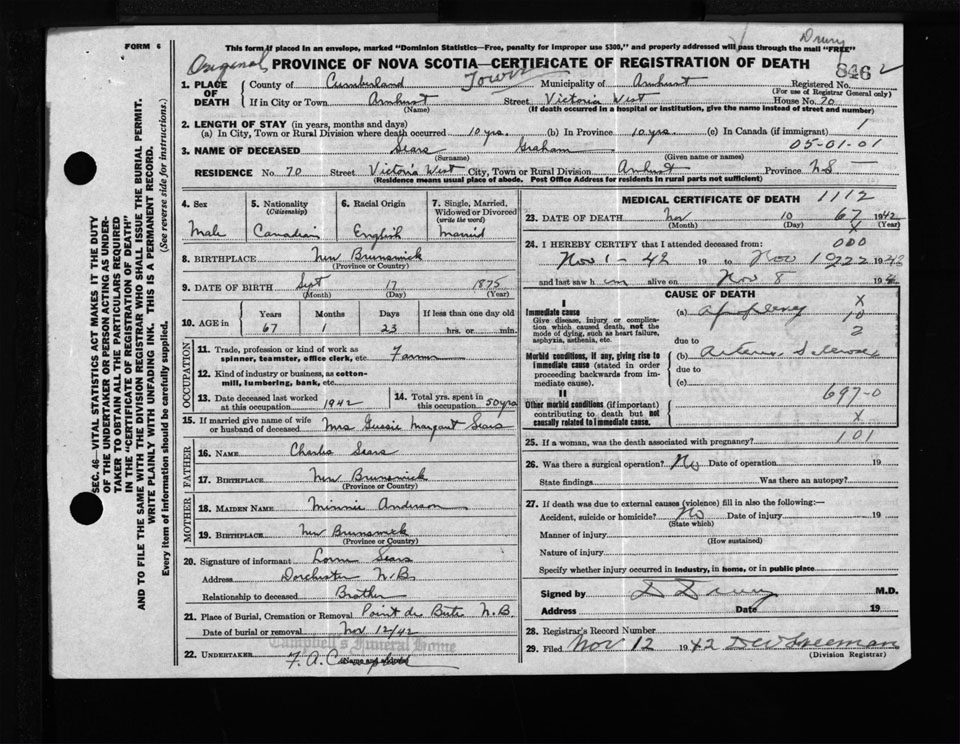 FORM 6
This form if placed in an envelope, marked "Dominion Statistics—Free, penalty for improper use $300," and properly addressed will pass through the mail "FREE"
Drury
Original
PROVINCE OF NOVA SCOTIA—CERTIFICATE OF REGISTRATION OF DEATH
846 2
1. PLACE OF DEATH
County of Cumberland Town Municipality of Amherst Registered No.
(For use of Registrar General only)
If in City or Town Amherst Street Victoria West House No. 70
(Name) (If death occurred in a hospital or institution, give the name instead of street and number)
2. LENGTH OF STAY (in years, months and days)
(a) In City, Town or Rural Division where death occurred 10 yrs. (b) In Province 10 yrs. (c) In Canada (if immigrant) 1
3. NAME OF DECEASED Sears Graham 05-01-01
(Surname) (Given name or names)
RESIDENCE No. 70 Street Victoria West City, Town or Rural Division Amherst Province N.S
(Residence means usual place of abode. Post Office Address for residents in rural parts not sufficient)
4. Sex Male
5. Nationality (Citizenship) Canadian
6. Racial Origin English
7. Single, Married, Widowed or Divorced (write the word) Married
8. BIRTHPLACE New Brunswick
(Province or Country)
9. DATE OF BIRTH Sept 17 1875
(Month) (Day) (Year)
10. AGE in Years Months Days If less than one day old
67 1 23 hrs. or min.
OCCUPATION
11. Trade, profession or kind of work as spinner, teamster, office clerk, etc. Farmer
12. Kind of industry or business, as cotton-mill, lumbering, bank, etc.
13. Date deceased last worked at this occupation 1942
14. Total yrs. spent in this occupation 50 yrs
15. If married give name of wife or husband of deceased Mrs Gussie Margaret Sears
FATHER
16. NAME Charles Sears
17. BIRTHPLACE New Brunswick
(Province or Country)
MOTHER
18. MAIDEN NAME Minnie Anderson
19. BIRTHPLACE New Brunswick
(Province or Country)
20. Signature of informant Lorne Sears
Address Dorchester N.B
Relationship to deceased Brother
21. Place of Burial, Cremation or Removal Point de Bute N.B.
Date of burial or removal Nov 12/42
Campbell's Funeral Home
22. UNDERTAKER F. A. Campbell
(Name and address)
MEDICAL CERTIFICATE OF DEATH 1112
23. DATE OF DEATH Nov 10 67 1942
(Month) (Day) X (Year)
24. I HEREBY CERTIFY that I attended deceased from: 000
Nov 1 - 42 19 to Nov 10 222 1942
and last saw him alive on Nov 8 1942
CAUSE OF DEATH
I
Immediate cause
Give disease, injury or complication which caused death, not the mode of dying, such as heart failure, asphyxia, asthenia, etc.
(a) apoplexy
X
10
2
due to
Morbid conditions, if any, giving rise to immediate cause (stated in order proceeding backwards from immediate cause).
(b) Arterio Sclerosis
due to
(c)
II
Other morbid conditions (if important) contributing to death but not causally related to immediate cause.
697-0
X
25. If a woman, was the death associated with pregnancy? 101
26. Was there a surgical operation? No Date of operation 19
State findings Was there an autopsy?
27. If death was due to external causes (violence) fill in also the following:—
Accident, suicide or homicide? No Date of injury 19
(State which)
Manner of injury
(How sustained)
Nature of injury
Specify whether injury occurred in industry, in home, or in public place
Signed by D Drury M.D.
Address Date 19
28. Registrar's Record Number
29. Filed Nov 12 1942 D W Freeman
(Division Registrar)
SEC. 46—VITAL STATISTICS ACT MAKES IT THE DUTY
OF THE UNDERTAKER OR PERSON ACTING AS UNDER-
TAKER TO OBTAIN ALL THE PARTICULARS REQUIRED
IN THE "CERTIFICATE OF REGISTRATION OF DEATH"
AND TO FILE THE SAME WITH THE DIVISION REGISTRAR WHO SHALL ISSUE THE BURIAL PERMIT.
WRITE PLAINLY WITH UNFADING INK. THIS IS A PERMANENT RECORD.
Every item of information should be carefully supplied. (See reverse side for instructions.)